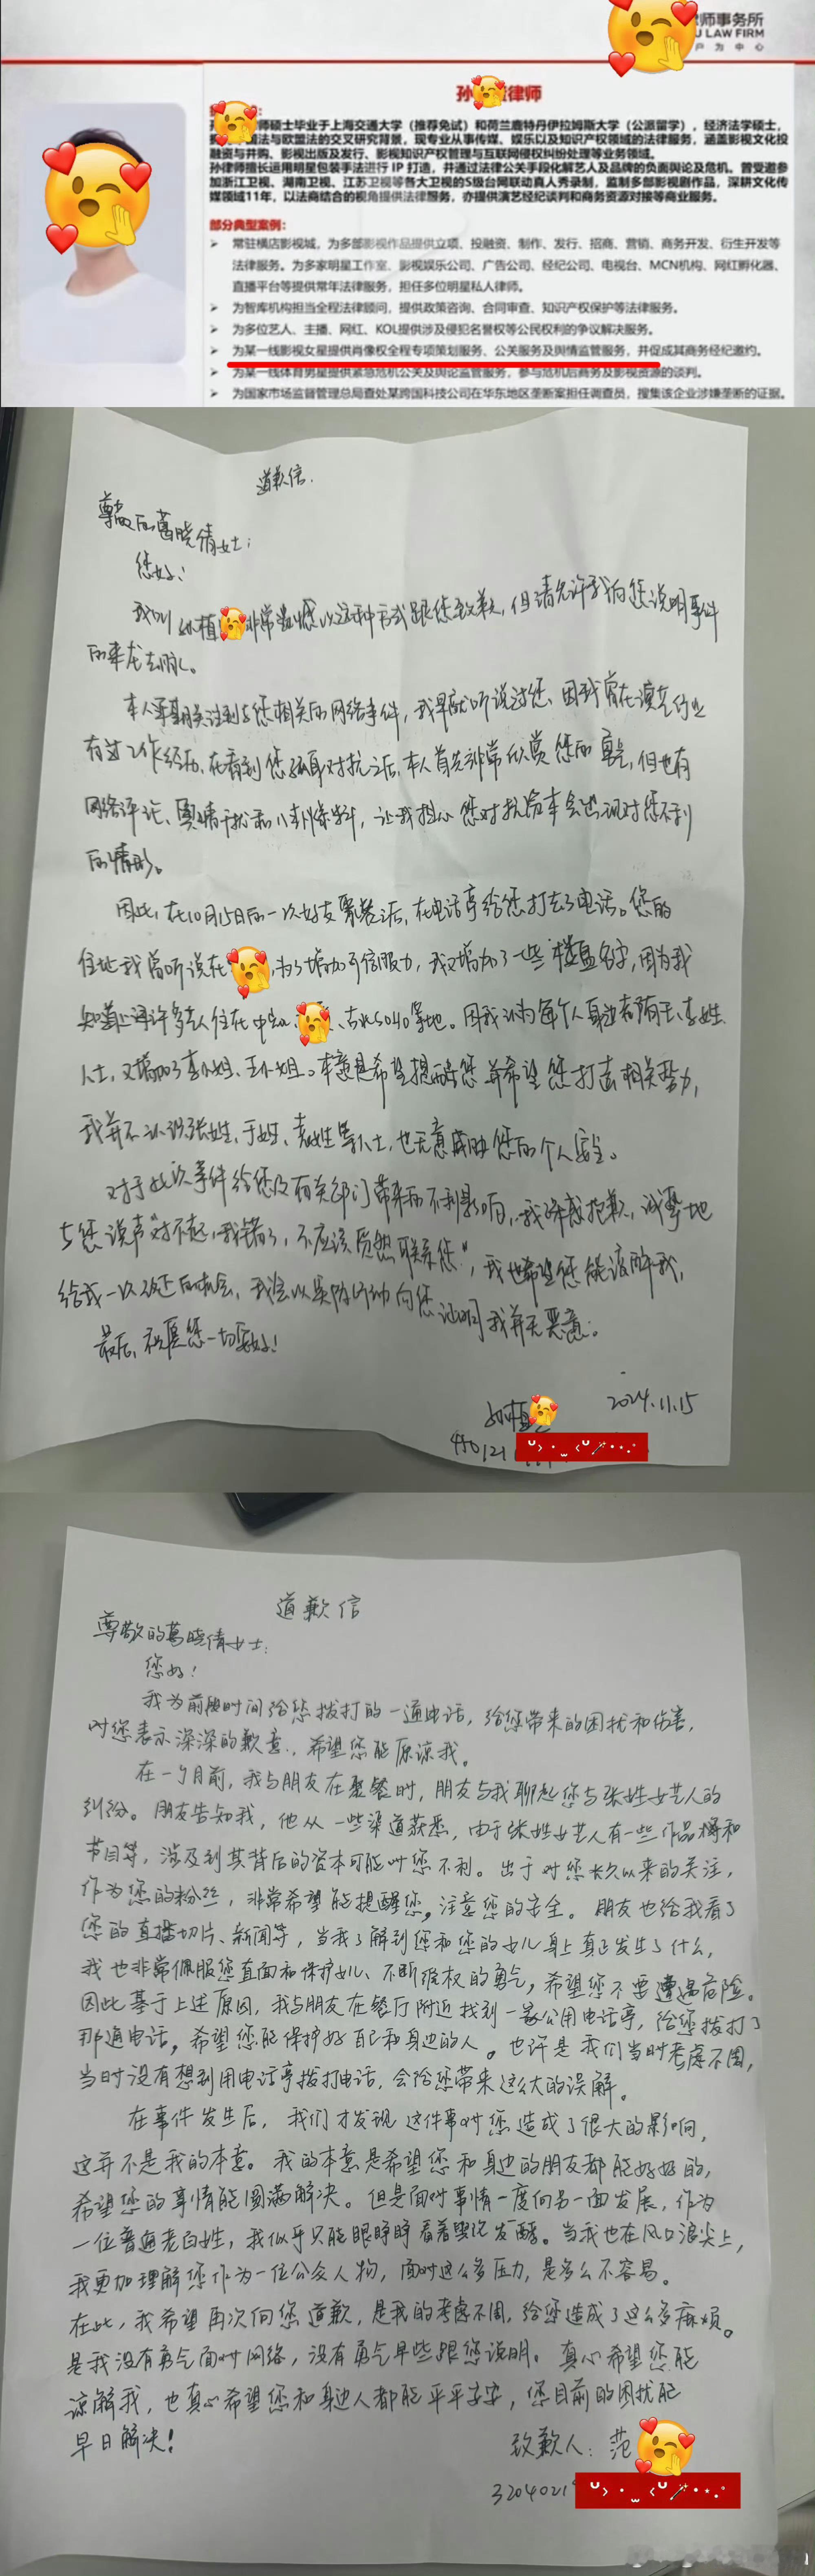 师事务所
U LAW FIRM
户 为 中 心
孙 律师
师硕士毕业于上海交通大学（推荐免试）和荷兰鹿特丹伊拉姆斯大学（公派留学），经济法学硕士，
法与欧盟法的交叉研究背景。现专业从事传媒、娱乐以及知识产权领域的法律服务，涵盖影视文化投
融资与并购、影视出版及发行、影视知识产权管理与互联网侵权纠纷处理等业务领域。
孙律师擅长运用明星包装手法进行 IP 打造，并通过法律公关手段化解艺人及品牌的负面舆论及危机。曾受邀参
加浙江卫视、湖南卫视、江苏卫视等各大卫视的S级台网联动真人秀录制，监制多部影视剧作品，深耕文化传
媒领域11年，以法商结合的视角提供法律服务，亦提供演艺经纪谈判和商务资源对接等商业服务。
部分典型案例：
常驻横店影视城，为多部影视作品提供立项、投融资、制作、发行、招商、营销、商务开发、衍生开发等
法律服务。为多家明星工作室、影视娱乐公司、广告公司、经纪公司、电视台、MCN机构、网红孵化器、
直播平台等提供常年法律服务，担任多位明星私人律师。
为智库机构担当全程法律顾问，提供政策咨询、合同审查、知识产权保护等法律服务。
为多位艺人、主播、网红、KOL提供涉及侵犯名誉权等公民权利的争议解决服务。
为某一线影视女星提供肖像权全程专项策划服务、公关服务及舆情监管服务，并促成其商务经纪邀约。
为某一线体育男星提供紧急危机公关及舆论监管服务，参与危机后商务及影视资源的谈判。
为国家市场监督管理总局查处某跨国科技公司在华东地区垄断案担任调查员，搜集该企业涉嫌垄断的证据。
道歉信.
尊敬的葛晓倩女士：
您好！
我叫孙植 非常遗憾以这种方式跟您致歉，但请允许我向您说明事件
的来龙去脉。
本人早期关注到与您相关的网络事件，我早就听说过您、因我曾在演艺行业
有过工作经历、在看到您孤身对抗之后，本人首先非常欣赏您的勇气，但也有
网络评论、舆情干扰和八卦爆料，让我担心您对抗资本会出现对您不利
的情形。
因此，在10月15日的一次好友聚餐之后，在电话亭给您打去了电话。您的
住址我曾听说在 ，为了增加可信服力，我又增加了一些楼盘名字，因为我
知道上海许多艺人住在中 、古北SOHO等地。因我认为每个人身边都有王、李姓
人士，又增加了李小姐、王小姐。本意是希望提醒您并希望您打击相关势力，
我并不认识张姓、于姓、袁姓等人士，也无意威胁您的个人安全。
对于此次事件给您及有关部门带来的不利影响，我深感抱歉，诚挚地
与您说声“对不起，我错了，不应该贸然联系您”，我也希望您能谅解我，
给我一次改正的机会，我会以实际行动向您证明我并无恶意。
最后，祝愿您一切安好！
孙植 2024.11.15
440121
道歉信
尊敬的葛晓倩女士：
您好！
我为前段时间给您拨打的一通电话，给您带来的困扰和伤害，
对您表示深深的歉意，希望您能原谅我。
在一个月前，我与朋友在聚餐时，朋友与我聊起您与张姓女艺人的
纠纷。朋友告知我，他从一些渠道获悉，由于张姓女艺人有一些作品播和
节目等，涉及到其背后的资本可能对您不利。出于对您长久以来的关注，
作为您的粉丝，非常希望能提醒您，注意您的安全。朋友也给我看了
您的直播切片、新闻等，当我了解到您和您的女儿身上真正发生了什么，
我也非常佩服您直面和保护女儿、不断维权的勇气，希望您不要遭遇危险。
因此基于上述原因，我与朋友在餐厅附近找到一家公用电话亭，给您拨打了
那通电话，希望您能保护好自己和身边的人。也许是我们当时考虑不周，
当时没有想到用电话亭拨打电话，会给您带来这么大的误解。
在事件发生后，我们才发现这件事对您造成了很大的影响，
这并不是我的本意。我的本意是希望您和身边的朋友都能好好的，
希望您的事情能圆满解决。但是面对事情一度向另一面发展，作为
一位普通老百姓，我似乎只能眼睁睁看着舆论发酵。当我也在风口浪尖上，
我更加理解您作为一位公众人物，面对这么多压力，是多么不容易。
在此，我希望再次向您道歉，是我的考虑不周，给您造成了这么多麻烦。
是我没有勇气面对网络，没有勇气早些跟您说明。真心希望您能
谅解我，也真心希望您和身边人都能平平安安，您目前的困扰能
早日解决！
致歉人：范
3204021